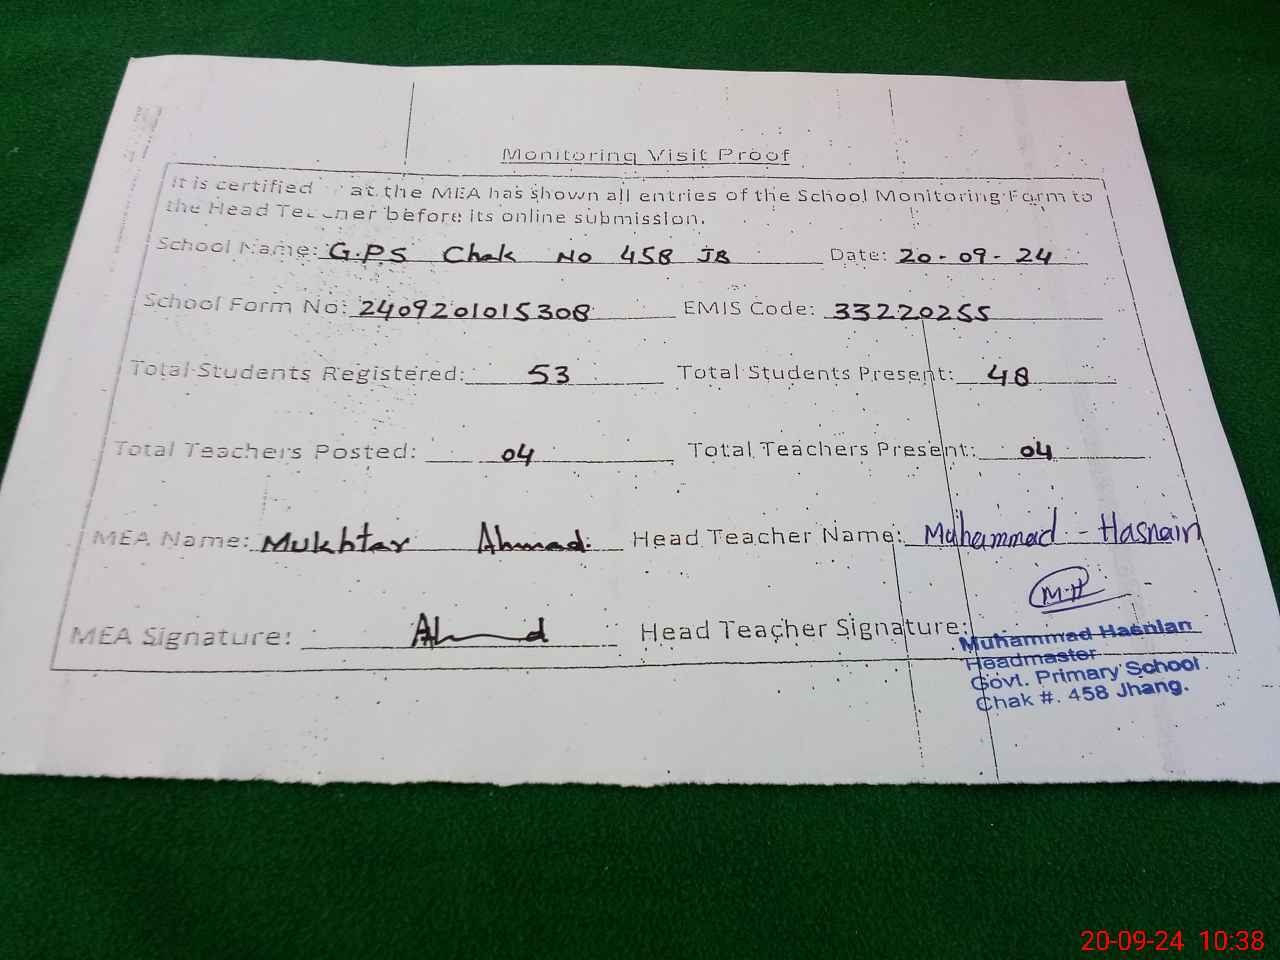 Monitoring Visit Proof
It is certified at the MEA has shown all entries of the School Monitoring Form to
the Head Teacher before its online submission.
School Name: G.P.S Chak No 458 JB Date: 20-09-24
School Form No: 2409201015308 EMIS Code: 33220255
Total Students Registered: 53 Total Students Present: 48
Total Teachers Posted: 04 Total Teachers Present: 04
MEA Name: Mukhtar Ahmad. Head Teacher Name: Muhammad - Hasnain
M.H
MEA Signature: Ahmad Head Teacher Signature:
Muhammad Hasnian
Headmaster
Govt. Primary School
Chak #. 458 Jhang.
20-09-24 10:38